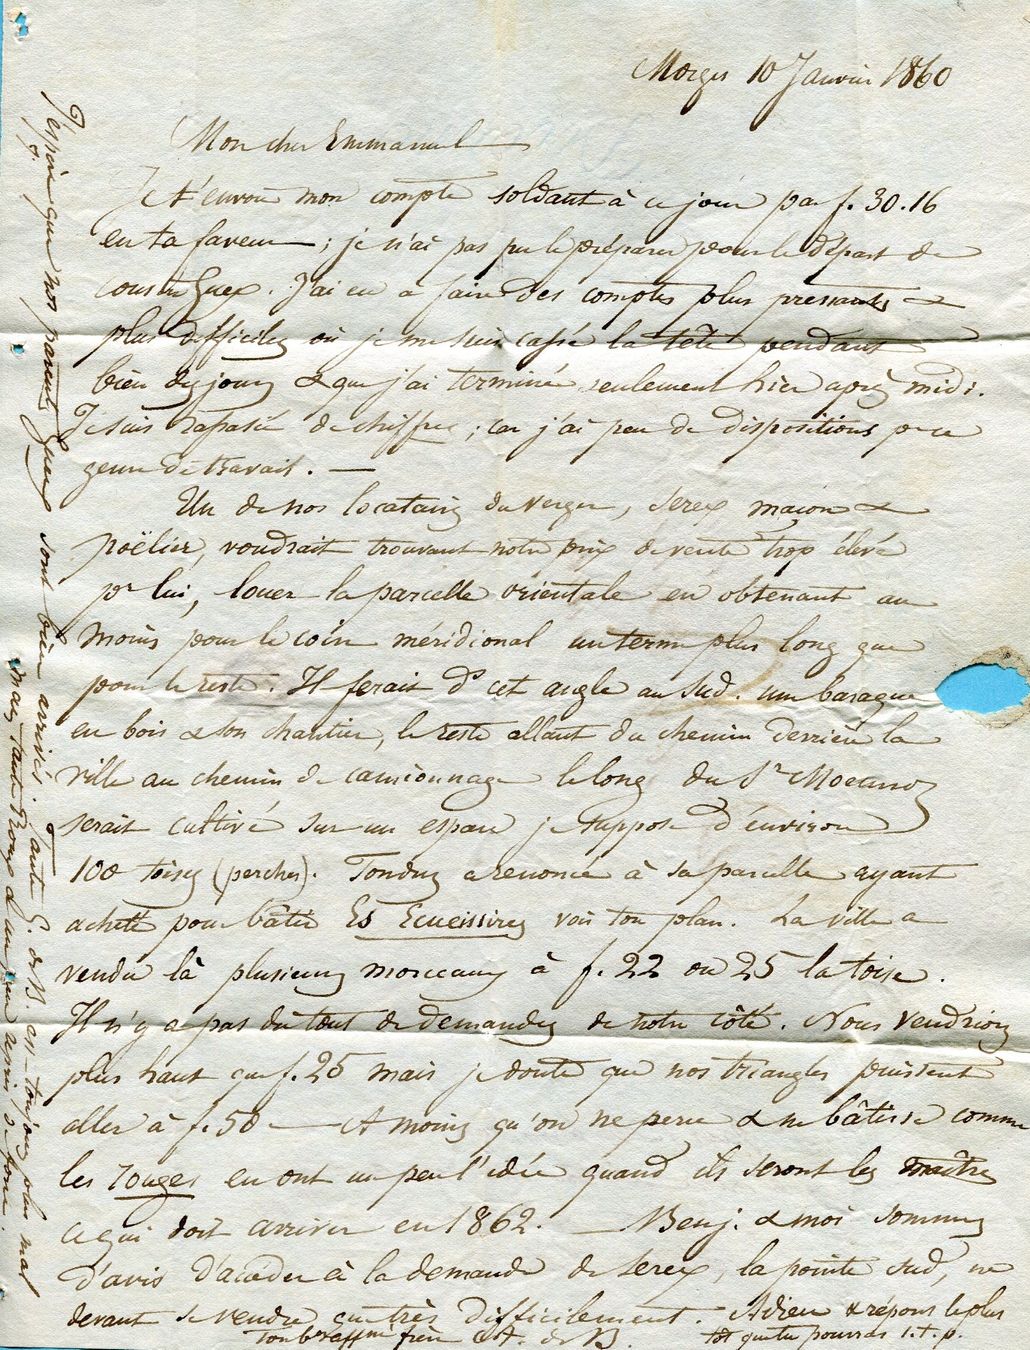 Morges 10 Janvier 1860
Mon cher Emmanuel
Je t'envoie mon compte soldant à ce jour par f. 30.16
en ta faveur ; je n'ai pas pu le préparer pour le départ de
cousin Guex. J'ai eu à faire des comptes plus pressants &
plus difficiles où je me suis cassé la tête pendant
bien des jours & que j'ai terminé seulement hier après midi.
Je suis rassasié de chiffres ; car j'ai peu de dispositions pr ce
genre de travail. —
Un de nos locataires du verger, Serex maçon &
poëlier, voudrait trouvant notre prix de vente trop élevé
pr lui, louer la parcelle orientale en obtenant au
moins pour le coin méridional un terme plus long que
pour le reste. Il ferait ds cet angle au sud. une baraque
en bois & son chantier, le reste allant du chemin derrière la
ville au chemin de camionnage le long du Sr
serait cultivé sur un espace je suppose d'environ
100 toises (perches). Tonduz a renoncé à sa parcelle ayant
acheté pour bâtir Es Ecueissires voir ton plan. La ville a
vendu là plusieurs morceaux à f. 22 ou 25 la toise.
Il n'y a pas du tout de demandes de notre côté. Nous vendrions
plus haut que f. 25 mais je doute que nos triangles puissent
aller à f. 50 — A moins qu'on ne perce & ne bâtisse comme
les rouges en ont un peu l'idée quand ils seront les maîtres
ce qui doit arriver en 1862. — Benj. & moi sommes
d'avis d'accéder à la demande de Serex, la pointe sud, ne
devant se vendre que très difficilement. Adieu & répons le plus
tôt que tu pourras s.t.p.
Ton bn affné frère de B.
J'espère que nos parents Guex sont bien arrivés. Tante E. de B. est toujours plus mal
mais tante d'un peu de force.